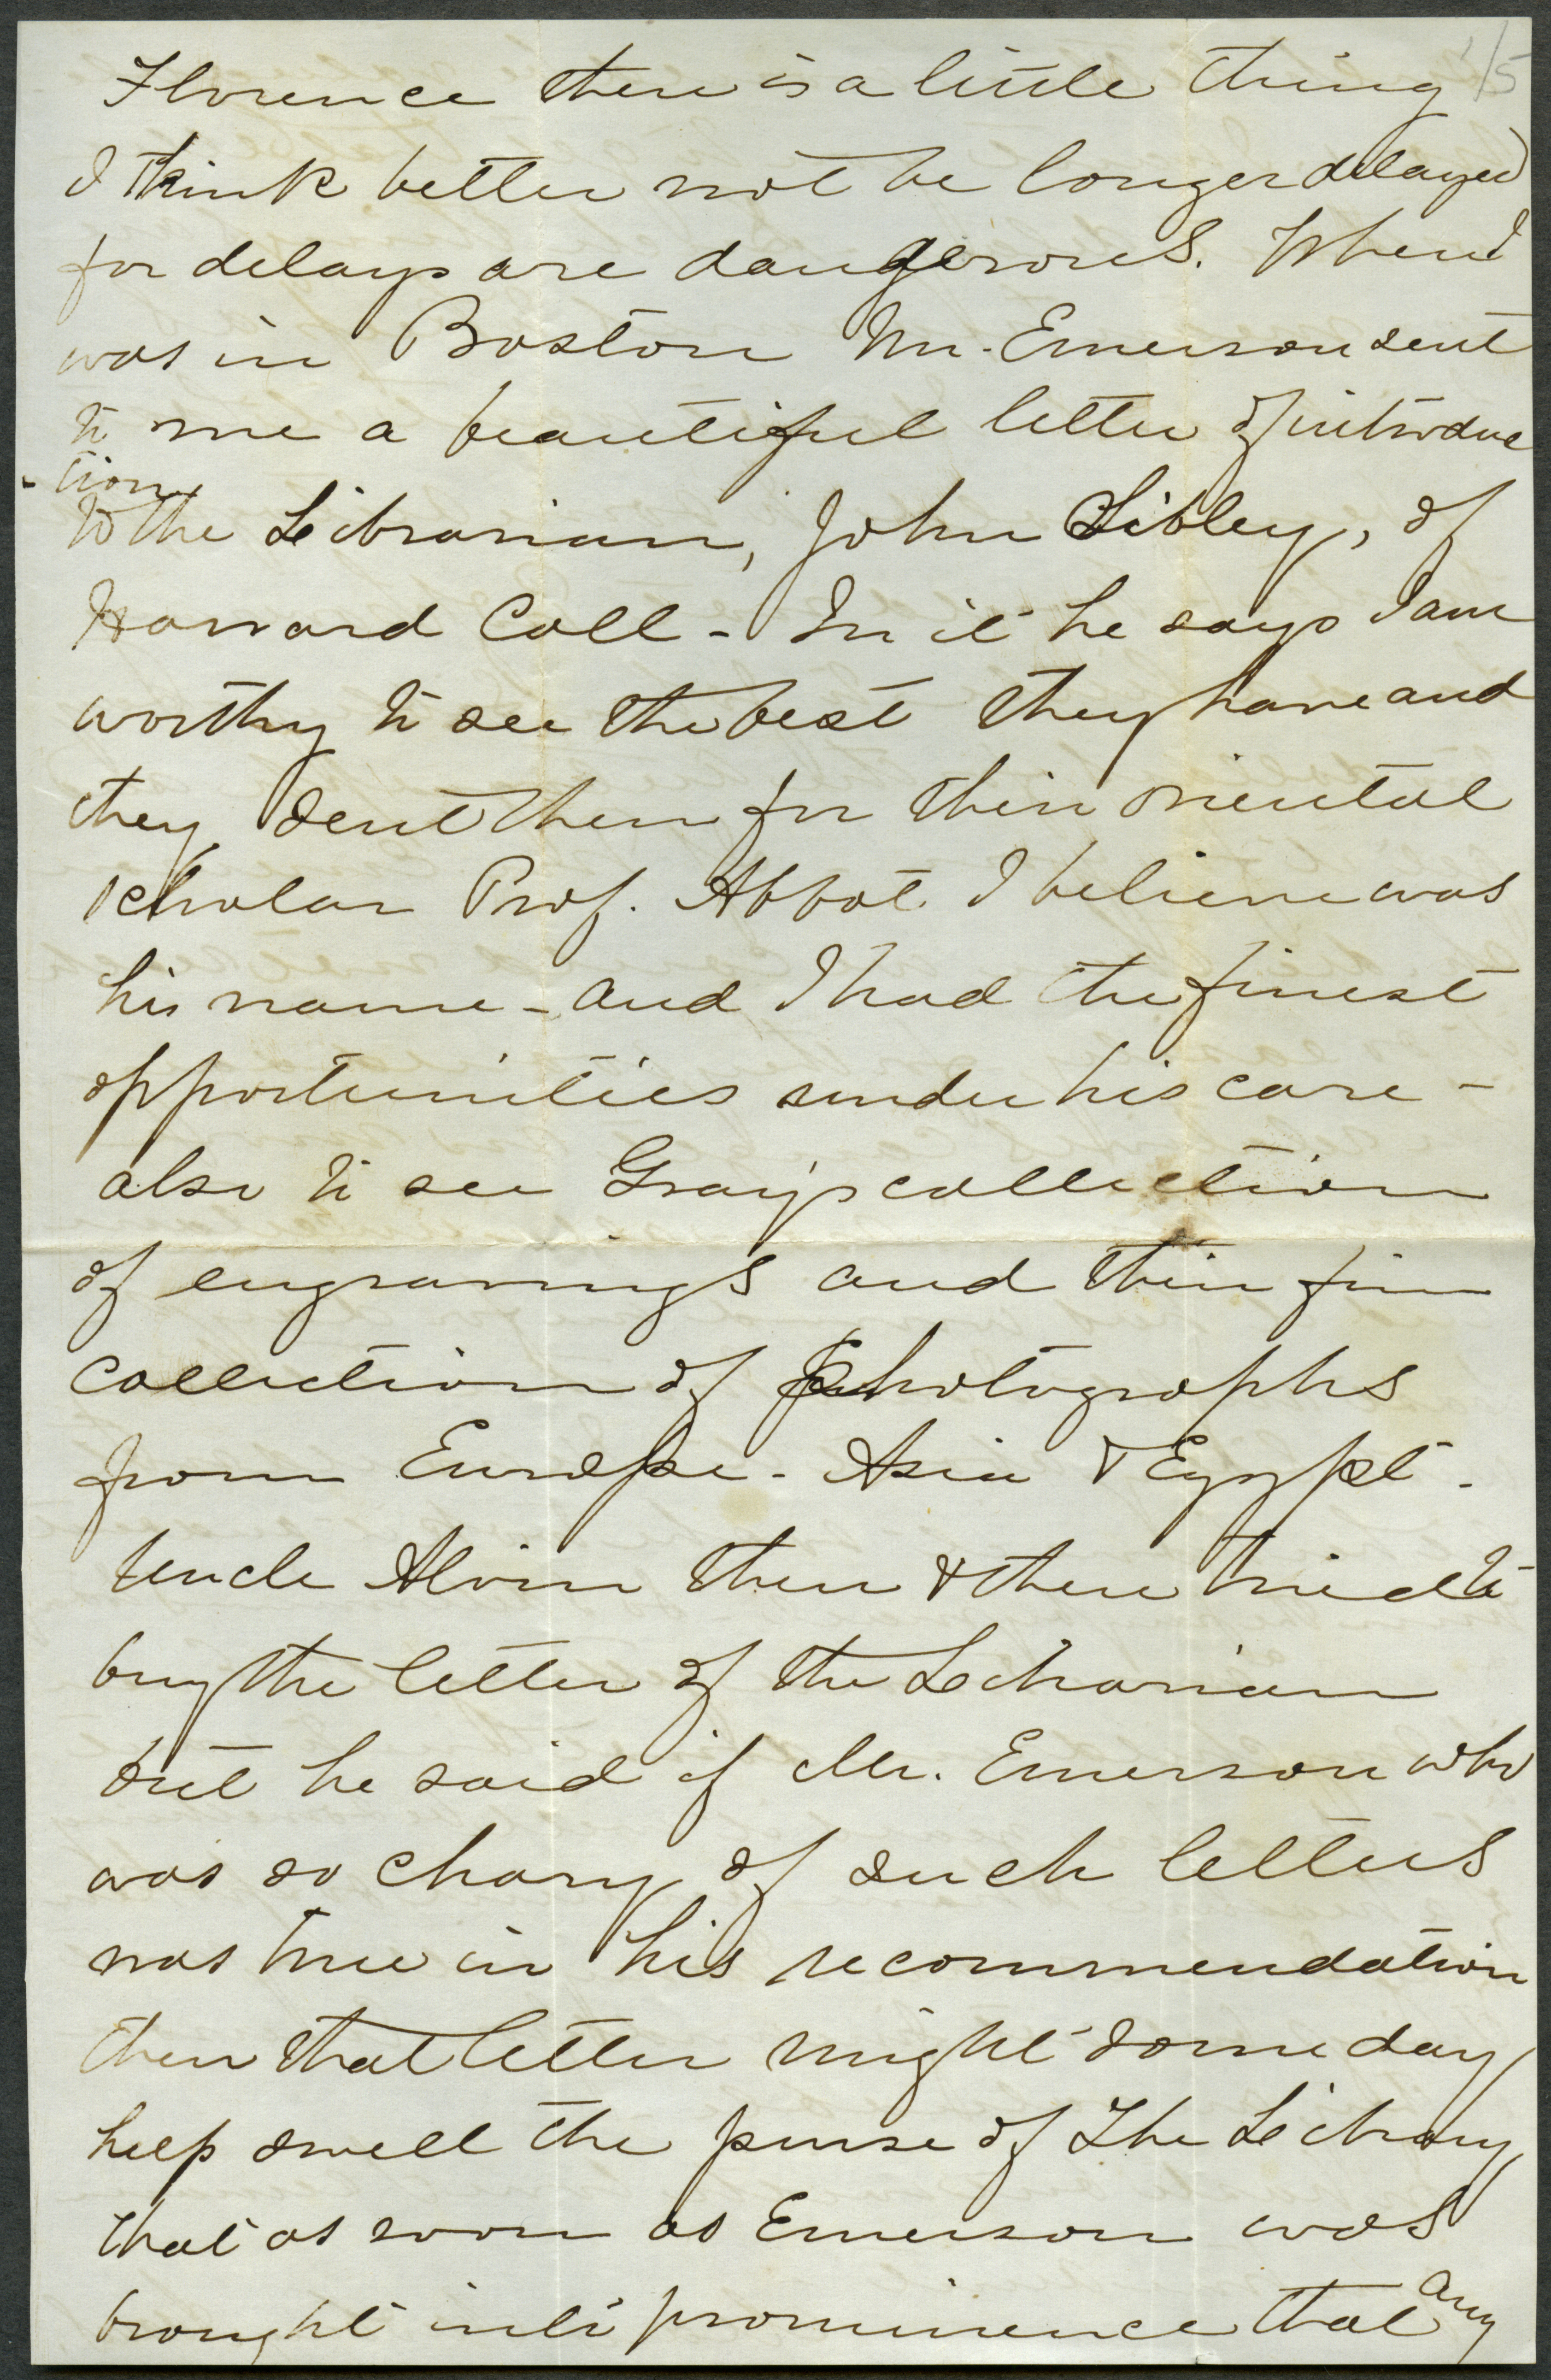 1/5
Florence there is a little thing
I think better not be longer delayed
for delays are dangerous. When I
was in Boston Mr. Emerson sent
to me a beautiful letter of introduc
-tion
to the Librarian, John Sibley, of
Harvard Coll - In it he says I am
worthy to see the best they have and
they sent then for their oriental
scholar Prof. Abbot I believe was
his name - and I had the finest
opportunities under his care -
also to see Gray's collection
of engravings and their fine
collection of photographs
from Europe - Asia & Egypt -
Uncle Alvin then & there tried to
buy the letter of the Librarian
but he said if Mr. Emerson who
was so chary of such letters
was true in his recommendation
then that letter might some day
help swell the purse of the Library
that as soon as Emerson was
brought into prominence that any